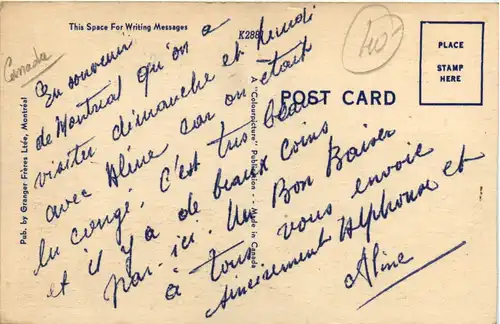 This Space For Writing Messages
K2881
40
Canada
PLACE
STAMP
HERE
POST CARD
Pub. by Granger Frères Ltée, Montréal
A "Colourpicture" Publication - Made in Canada
En souvenir
de Montreal qu'on a
visiter dimanche et lundi
avec Aline car on était
en congé. C'est tres beau
et il y a de beaux coins
par-ici. Un Bon Baiser
à tous vous envoie
sincèrement Alphonse et
Aline